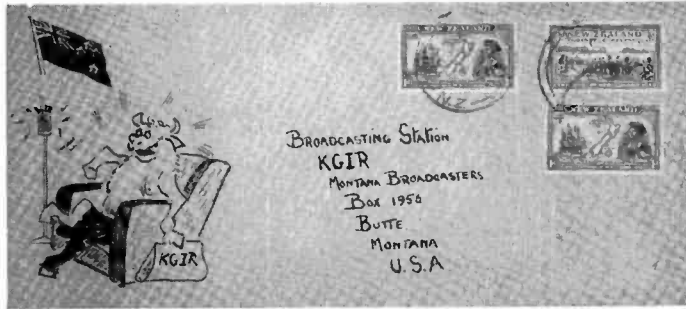 NEW ZEALAND
NEW ZEALAND
NEW ZEALAND
N.Z.
BROADCASTING STATION
KGIR
MONTANA BROADCASTERS
BOX 1956
BUTTE
MONTANA
U.S.A
KGIR